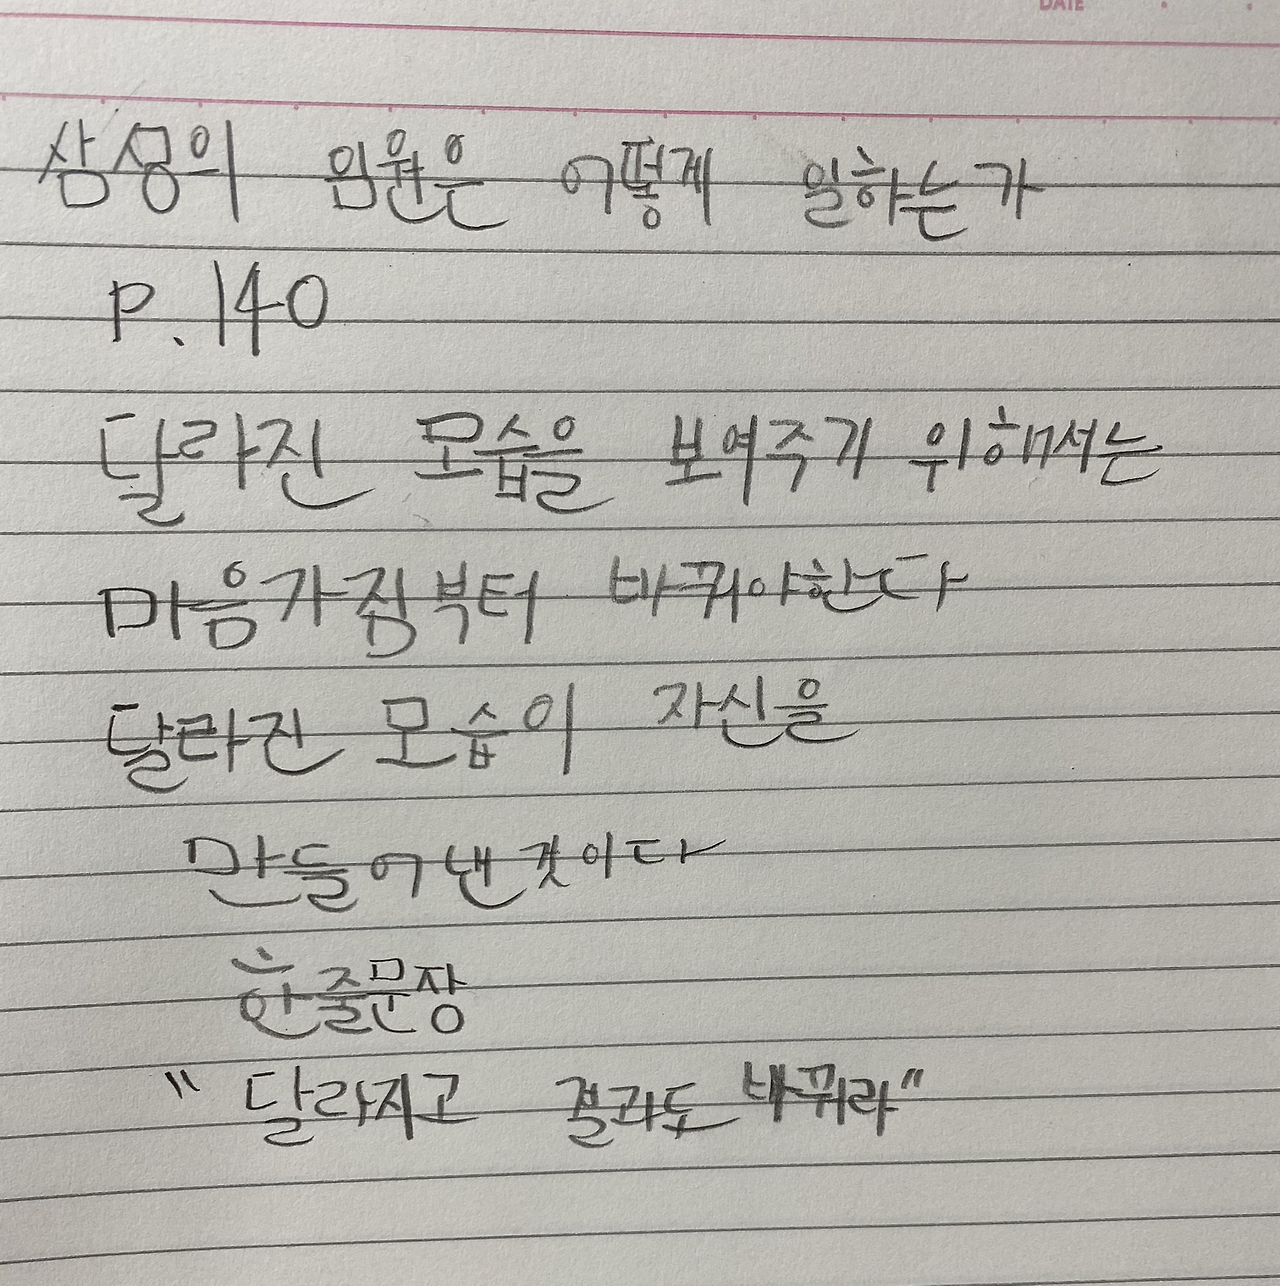 DATE
삼성의 임원은 어떻게 일하는가
P.140
달라진 모습을 보여주기 위해서는
마음가짐부터 바꿔야한다
달라진 모습이 자신을
만들어낸것이다
한줄문장
"달라지고 결과도 바꿔라"